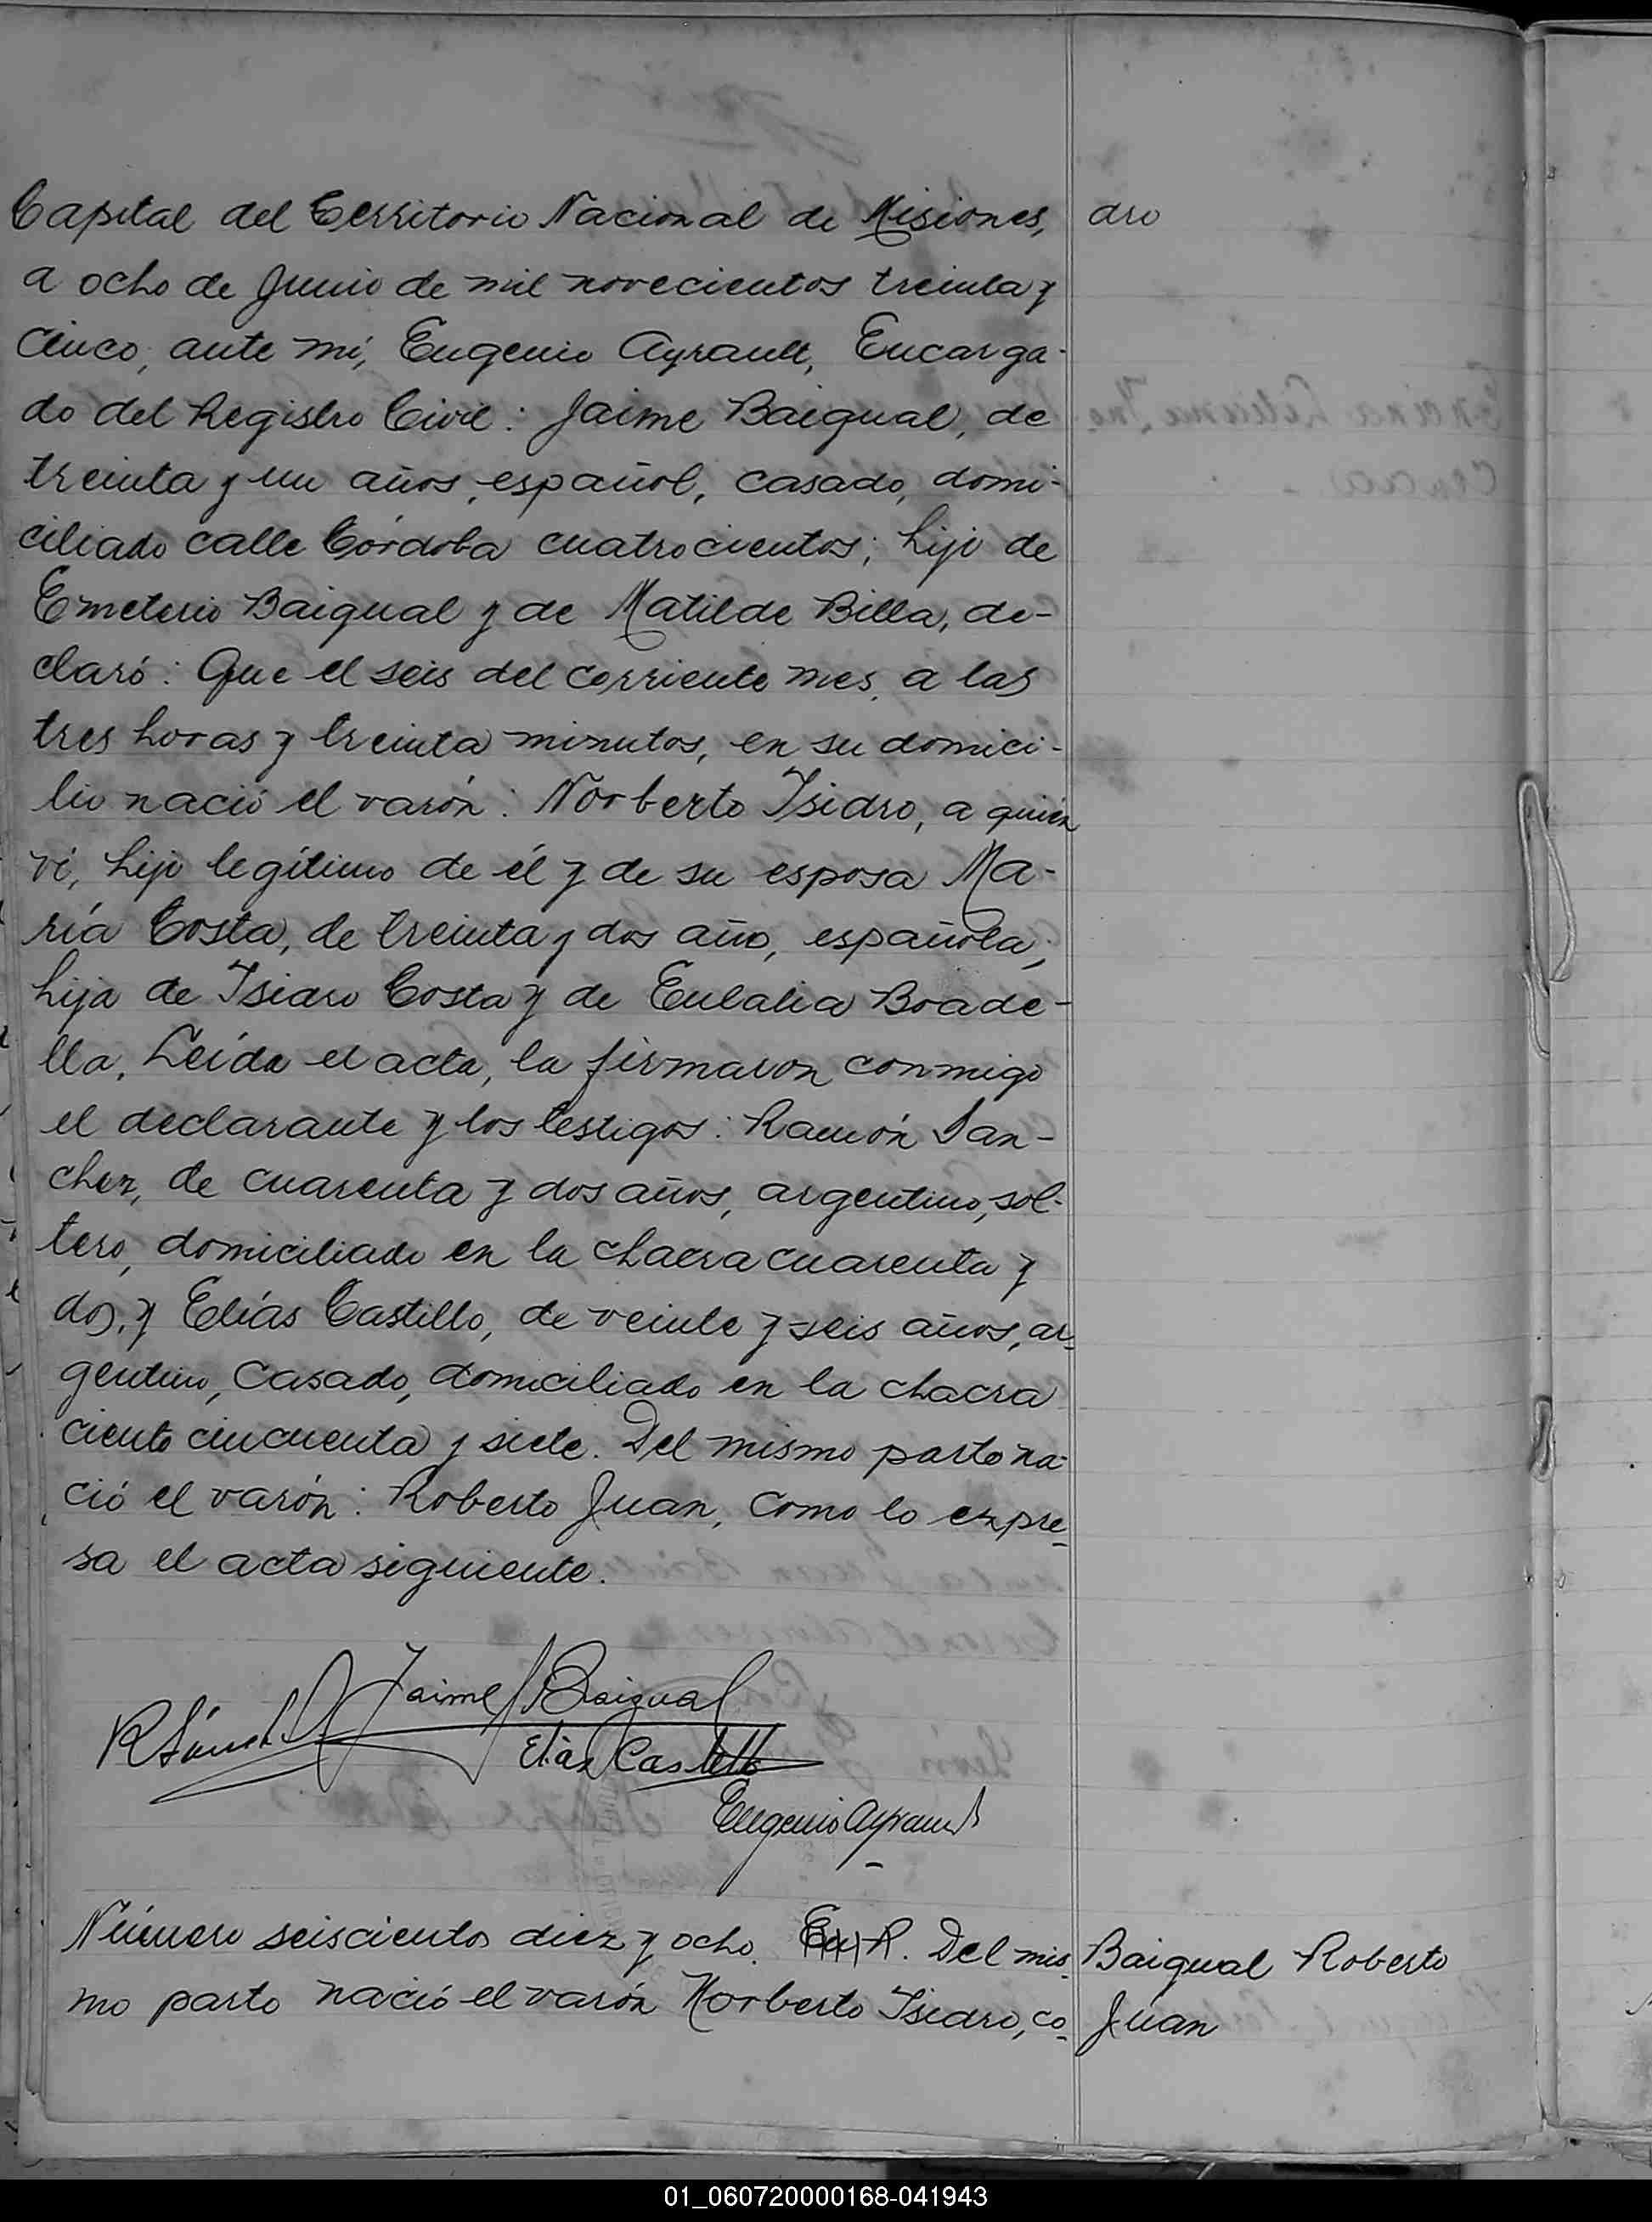 Capital del Territorio Nacional de Misiones,
dro
a ocho de Junio de mil novecientos treinta y
cinco, ante mí, Eugenio Ayrault, Encarga-
do del Registro Civil: Jaime Baigual, de
treinta y un años, español, casado, domi-
ciliado calle Córdoba cuatrocientos; hijo de
Emeterio Baigual y de Matilde Billa, de-
claró: Que el seis del corriente mes, a las
tres horas y treinta minutos, en su domici-
lio nació el varón: Norberto Isidro, a quién
ví, hijo legítimo de él y de su esposa Ma-
ría Costa, de treinta y dos año, española,
hija de Isidro Costa y de Eulalia Boade-
lla. Leída el acta, la firmaron conmigo
el declarante y los testigos: Ramón San-
chez, de cuarenta y dos años, argentino, sol-
tero, domiciliado en la chacra cuarenta y
dos, y Elías Castillo, de veinte y seis años, ar-
gentino, casado, domiciliado en la chacra
ciento cincuenta y siete. Del mismo parto na-
ció el varón: Roberto Juan, como lo expre-
sa el acta siguiente.
Jaime Baigual
RSánchez
Elias Castillo
Eugenio Ayrault
Número seiscientos diez y ocho. R. Del mis-
mo parto nació el varón Norberto Isidro, co-
Baigual Roberto
Juan
01_060720000168-041943